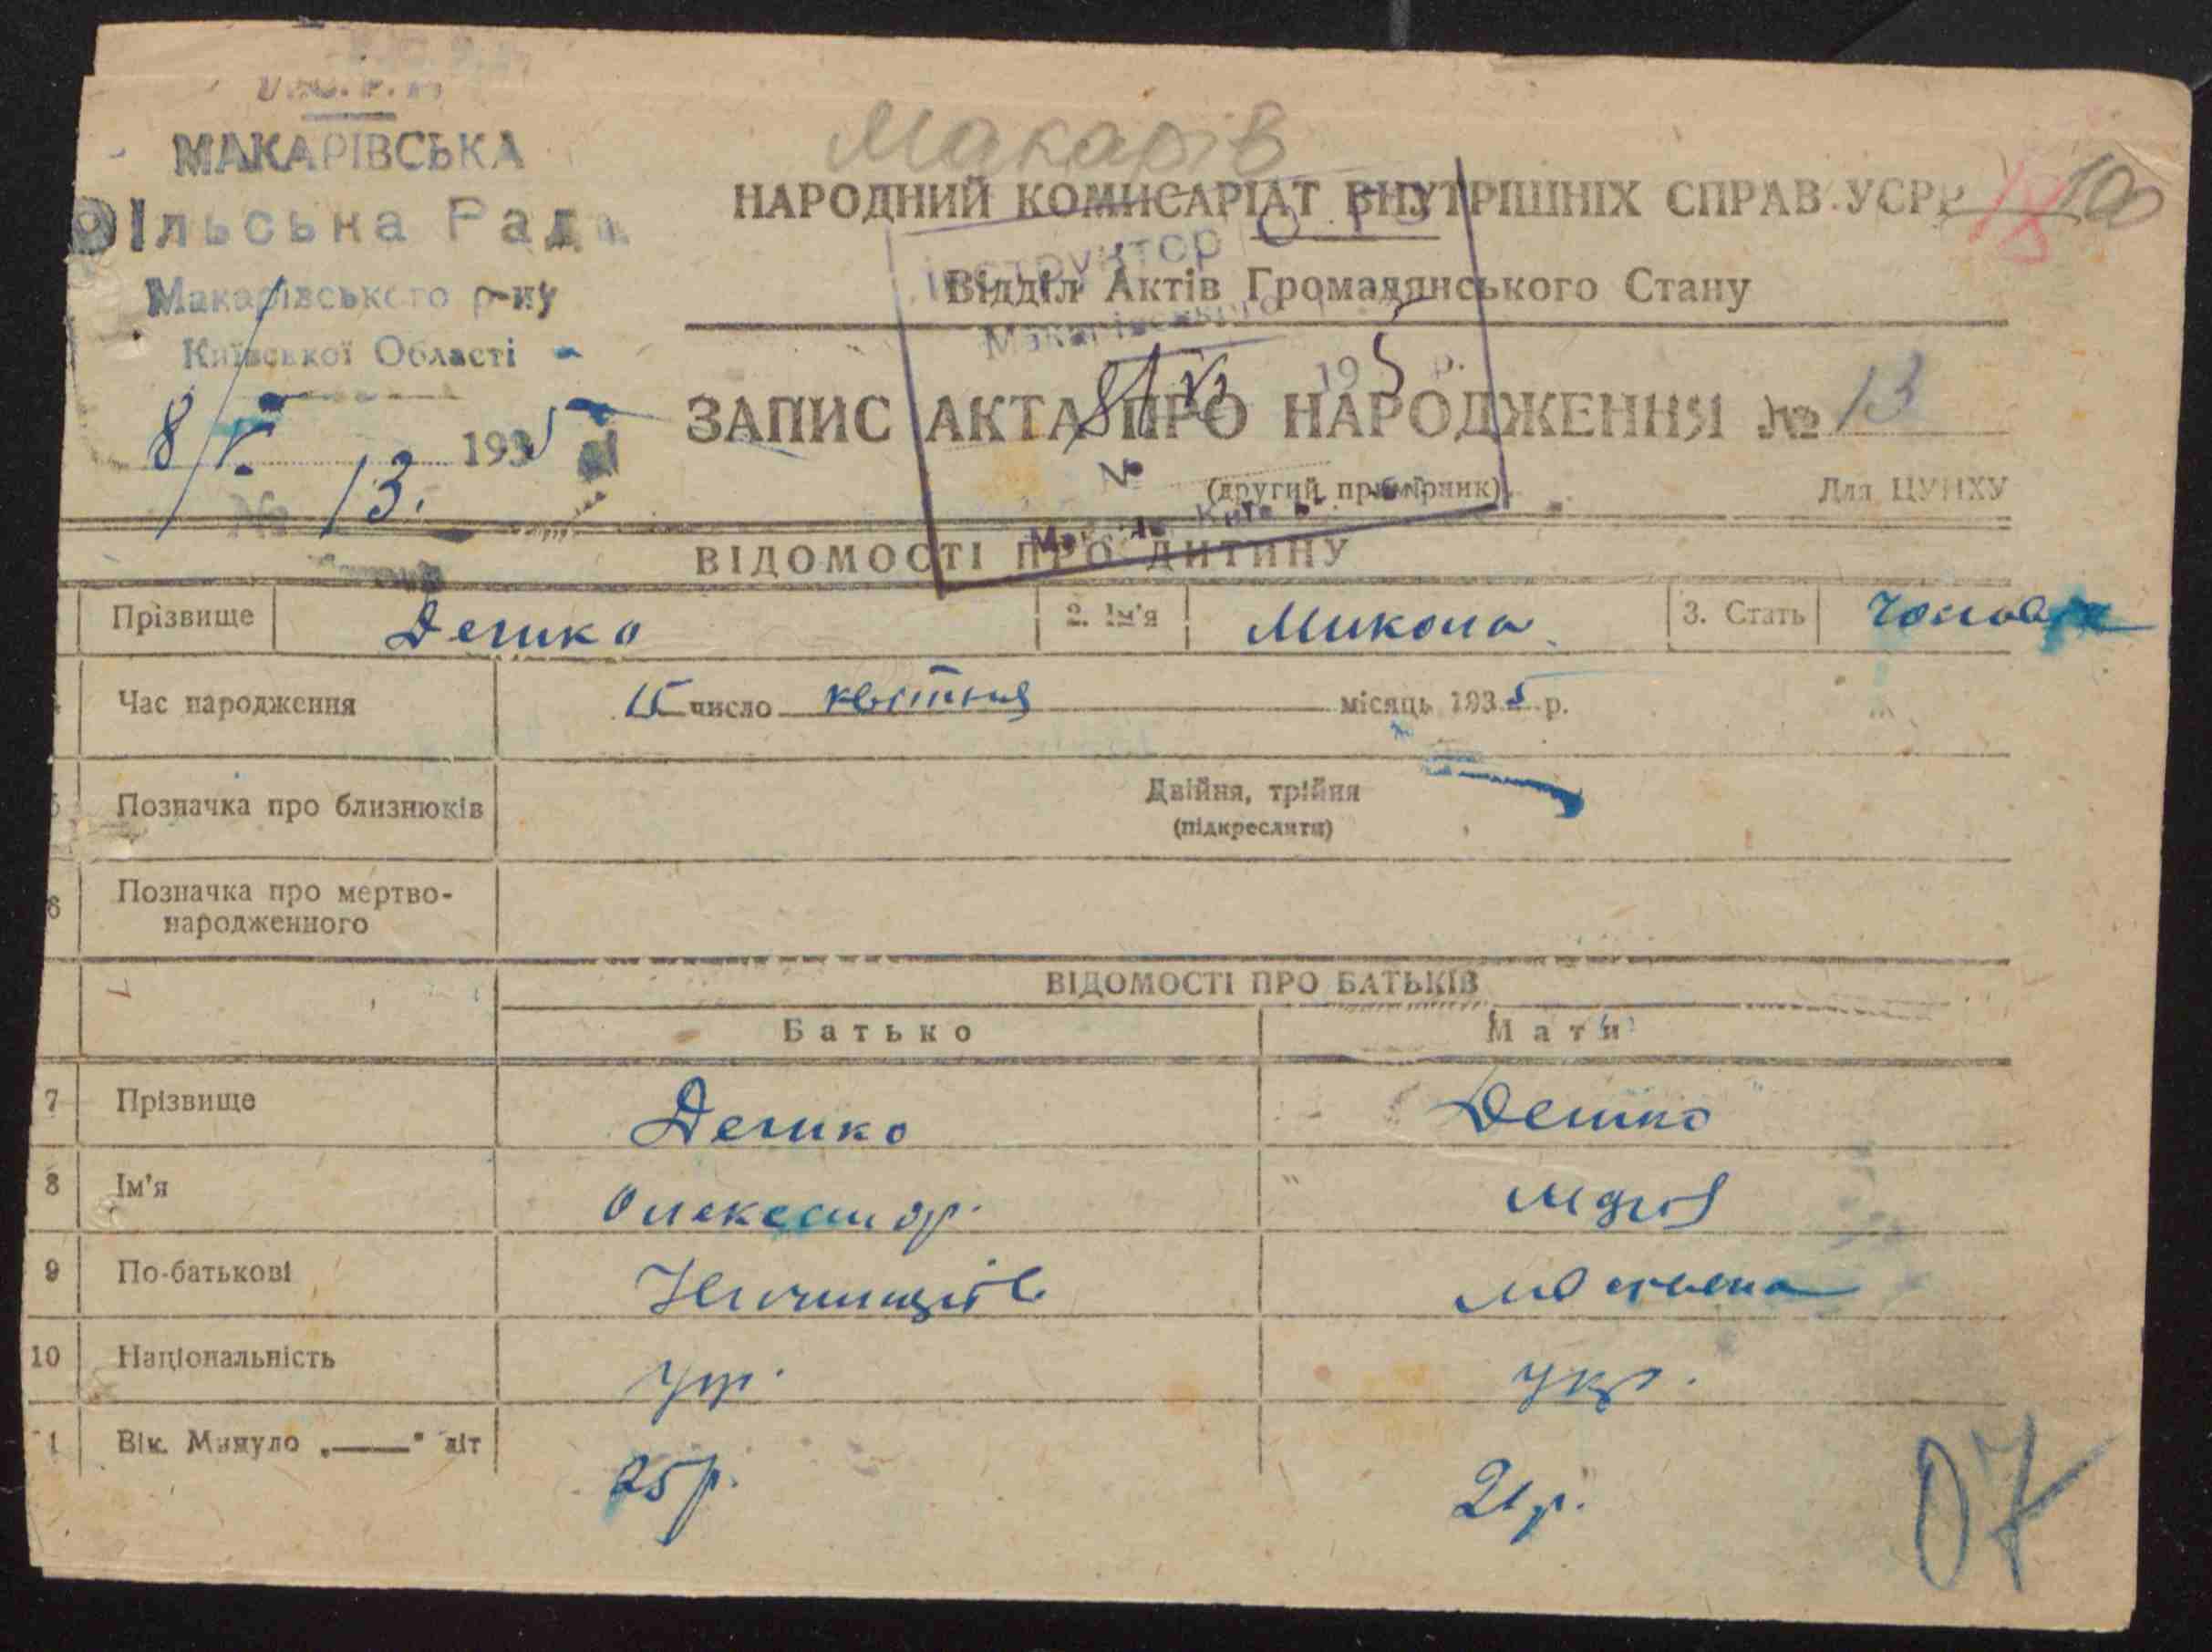 Макарів
МАКАРІВСЬКА
Сільська Рада
Макарівського р-ну
Київської Області
8/V. 1935
№ 13.
НАРОДНИЙ КОМІСАРІАТ ВНУТРІШНІХ СПРАВ УСРР
18 100
Інструктор
Відділ Актів Громадянського Стану
Макарівського
1935 р.
ЗАПИС АКТА ПРО НАРОДЖЕННЯ № 13
№
(другий примірник)
Для ЦУНХУ
ВІДОМОСТІ ПРО ДИТИНУ
Прізвище Дешко 2. Ім'я Микола 3. Стать Чоловіч
Час народження 15 число квітня місяць 1935 р.
5 Позначка про близнюків Двійня, трійня
(підкреслити)
6 Позначка про мертво-
народженного
ВІДОМОСТІ ПРО БАТЬКІВ
Батько Мати
7 Прізвище Дешко Дешко
8 Ім'я Олександр.
9 По-батькові
10 Національність укр. укр.
1 Вік. Минуло „——" літ 25р. 21р.
07